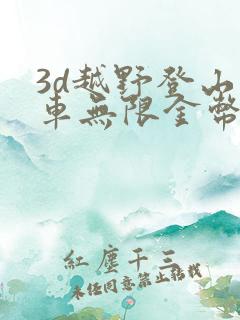 3d越野登山
車無限金幣
紅塵千三
未經同意禁止轉載